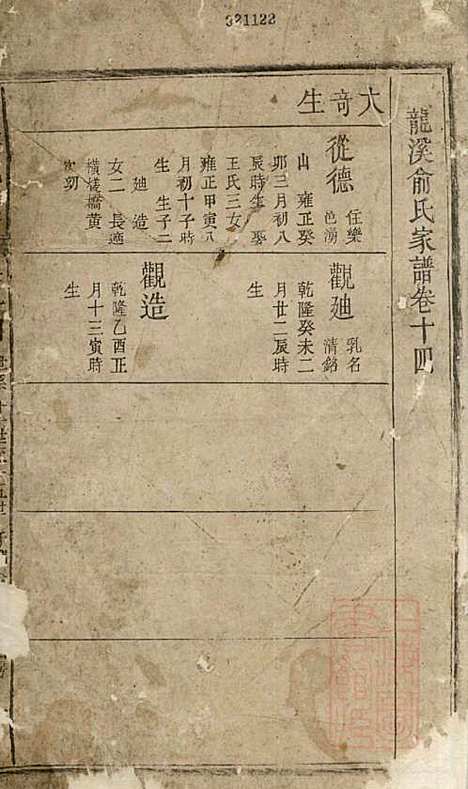 321122
龍溪俞氏家譜卷十四
大竒生
從德
任樂
邑湧
山 雍正癸
卯三月初八
辰時生 娶
王氏三女
雍正甲寅八
月初十子時
生 生子二
廸 造
女二 長適
橫棧橋黃
次刕
觀廸
乳名
清銘
乾隆癸未二
月廿二辰時
生
觀造
乾隆乙酉正
月十三寅時
生